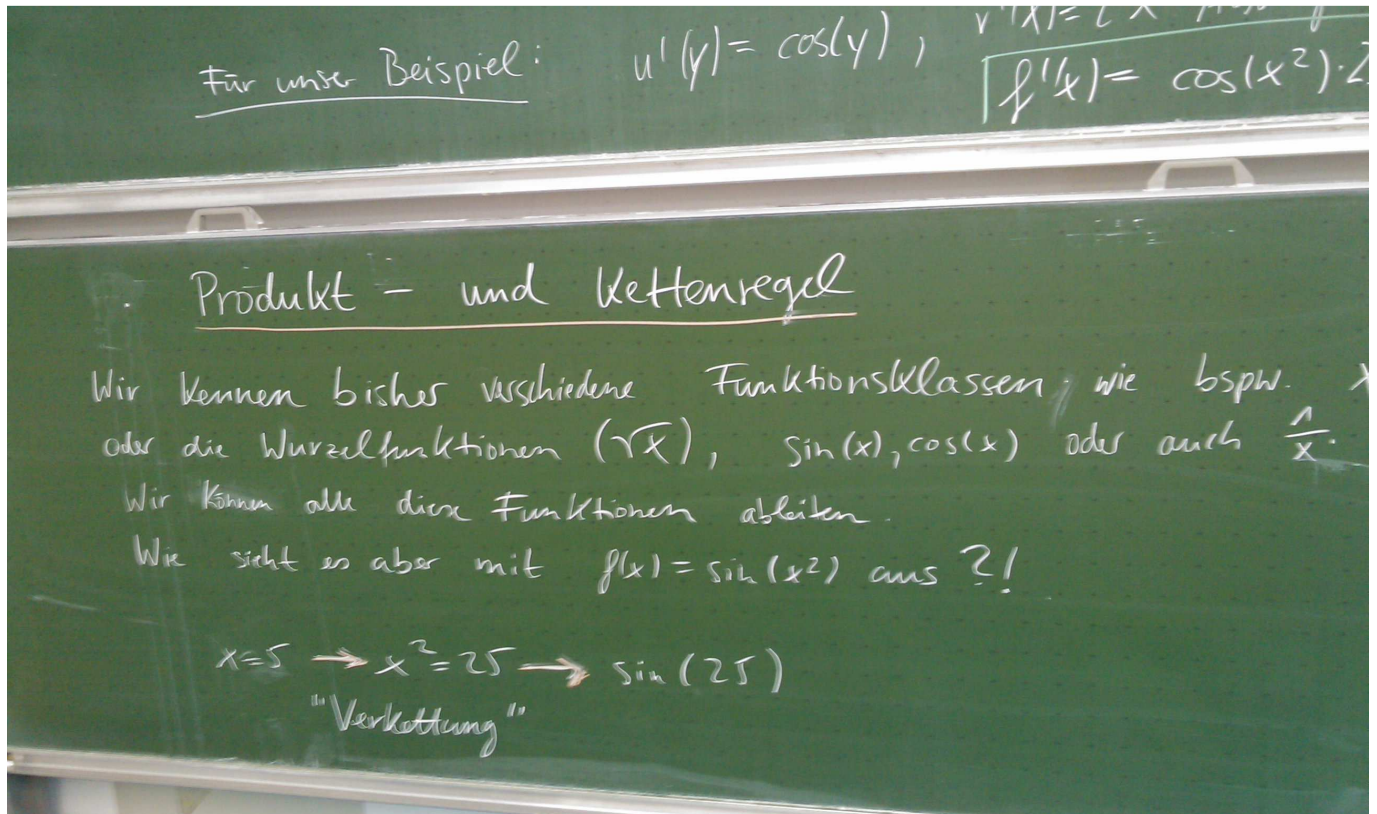 Für unser Beispiel: u'(y) = cos(y), v'(x) = 2x
f'(x) = cos(x²)·2
Produkt - und Kettenregel
Wir kennen bisher verschiedene Funktionsklassen, wie bspw. x
oder die Wurzelfunktionen (√x), sin(x), cos(x) oder auch 1/x.
Wir können alle diese Funktionen ableiten.
Wie sieht es aber mit f(x) = sin(x²) aus ?!
x=5 → x²=25 → sin(25)
"Verkettung"